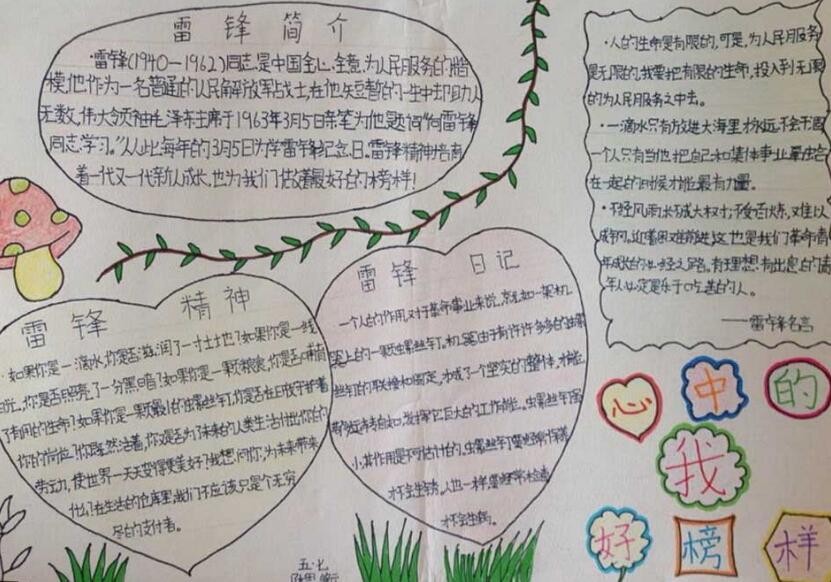 雷锋简介
·雷锋(1940—1962)同志.是中国全心.全意.为人民服务的楷
模.他作为一名普通的人民解放军战士,在他短暂的一生中却助人
无数,伟大领袖毛泽东主席于1963年3月5日亲笔为他题词"向雷锋
同志学习。"从此每年的3月5日为学雷锋纪念日。雷锋精神培育
着一代又一代新人成长,也为我们树立着最好的榜样!
·人的生命是有限的,可是,为人民服务
是无限的,我要把有限的生命,投入到无限
的为人民服务之中去。
·一滴水只有放进大海里才永远不会干涸
一个人只有当他把自己和集体事业融合
在一起的时候才能最有力量。
·不经风雨,长不成大树;不受百炼,难以
成钢。迎着困难前进,这也是我们革命青
年成长的必经之路。有理想有出息的青
年人必定是乐于吃苦的人。
——雷锋名言
雷锋精神
·如果你是一滴水,你是否滋润了一寸土地?如果你是一线
阳光,你是否照亮了一分黑暗?如果你是一颗粮食,你是否哺育
了有用的生命?如果你是一颗最小的螺丝钉,你是否在日夜守护着
你的岗位?你既然活着,你是否为了未来的人类生活付出你的
劳动,使世界一天天变得更美好?我想问你,为未来带来
在生活的仓库里,我们不应该只是个无穷
尽的支付者。
雷锋日记
一个人的作用,对于革命事业来说,就如一架机
器上的一颗螺丝钉。机器由于有许许多多的螺
丝钉的联接和固定,才成了一个坚实的整体,才能
运转自如,发挥它巨大的工作能。螺丝钉虽
小,其作用是不可估计的。螺丝钉要经常保养
才不会生锈。人也一样,要经常检查
才不会生病。
心中的
我
好榜样
五·七